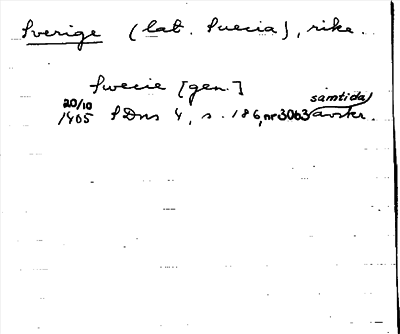 Sverige (lat. Suecia), rike.
Swecie [gen.]
20/10 samtida
1405 SDns 4, s. 186, nr 3063 avskr.